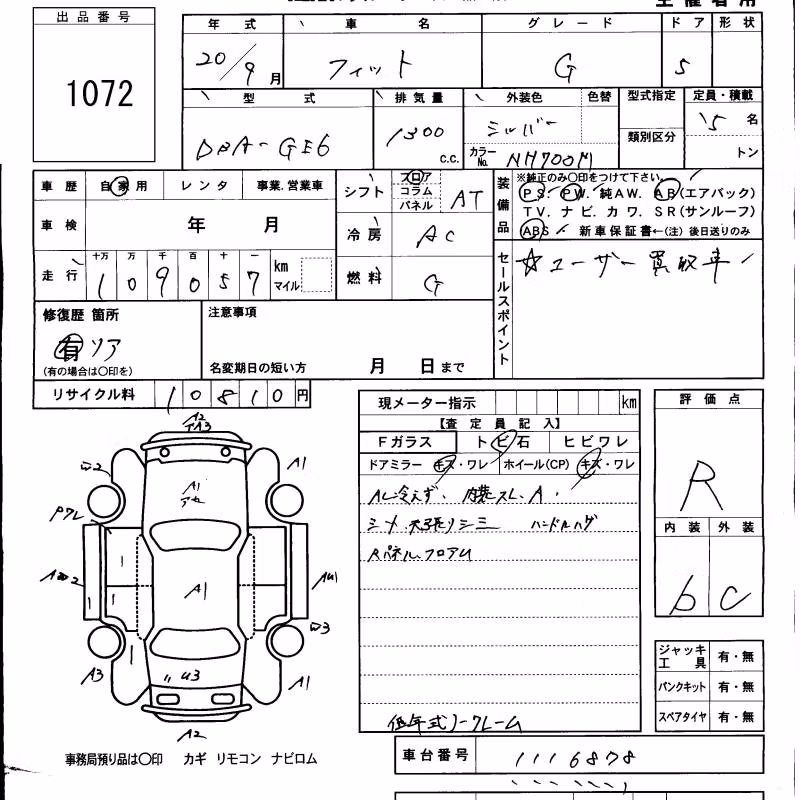 出品番号
1072
年式 車名 グレード ドア 形状
20/9月 フィット G 5
型式 排気量 外装色 色替 型式指定 定員・積載
DBA-GE6 1300 c.c. シルバー 類別区分 5名
カラーNo. NH700M トン
車歴 自家用 レンタ 事業.営業車
シフト フロア コラム パネル AT
装備品 ※純正のみ〇印をつけて下さい。
PS. PW. 純AW. AB(エアバック)
TV. ナビ. カワ. SR(サンルーフ)
ABS 新車保証書←(注) 後日送りのみ
車検 年 月
冷房 AC
走行 十万 万 千 百 十 一
109057 km マイル
燃料 G
セールスポイント ☆ユーザー買取車
修復歴 箇所
有 リア
(有の場合は〇印を)
注意事項
名変期日の短い方 月 日まで
リサイクル料 10810円
現メーター指示 km
【査定員記入】
Fガラス トビ石 ヒビワレ
ドアミラー キズ・ワレ ホイール(CP) キズ・ワレ
AC冷えず、内装スレ、A.
シナ 天張りシミ ハンドルハゲ
Rパネル フロアM
低年式ノークレーム
評価点
R
内装 外装
b C
ジャッキ工具 有・無
パンクキット 有・無
スペアタイヤ 有・無
A2
A1
A1
A1
A1
U3
A3
A1
A2
事務局預り品は〇印 カギ リモコン ナビロム
車台番号 1116878